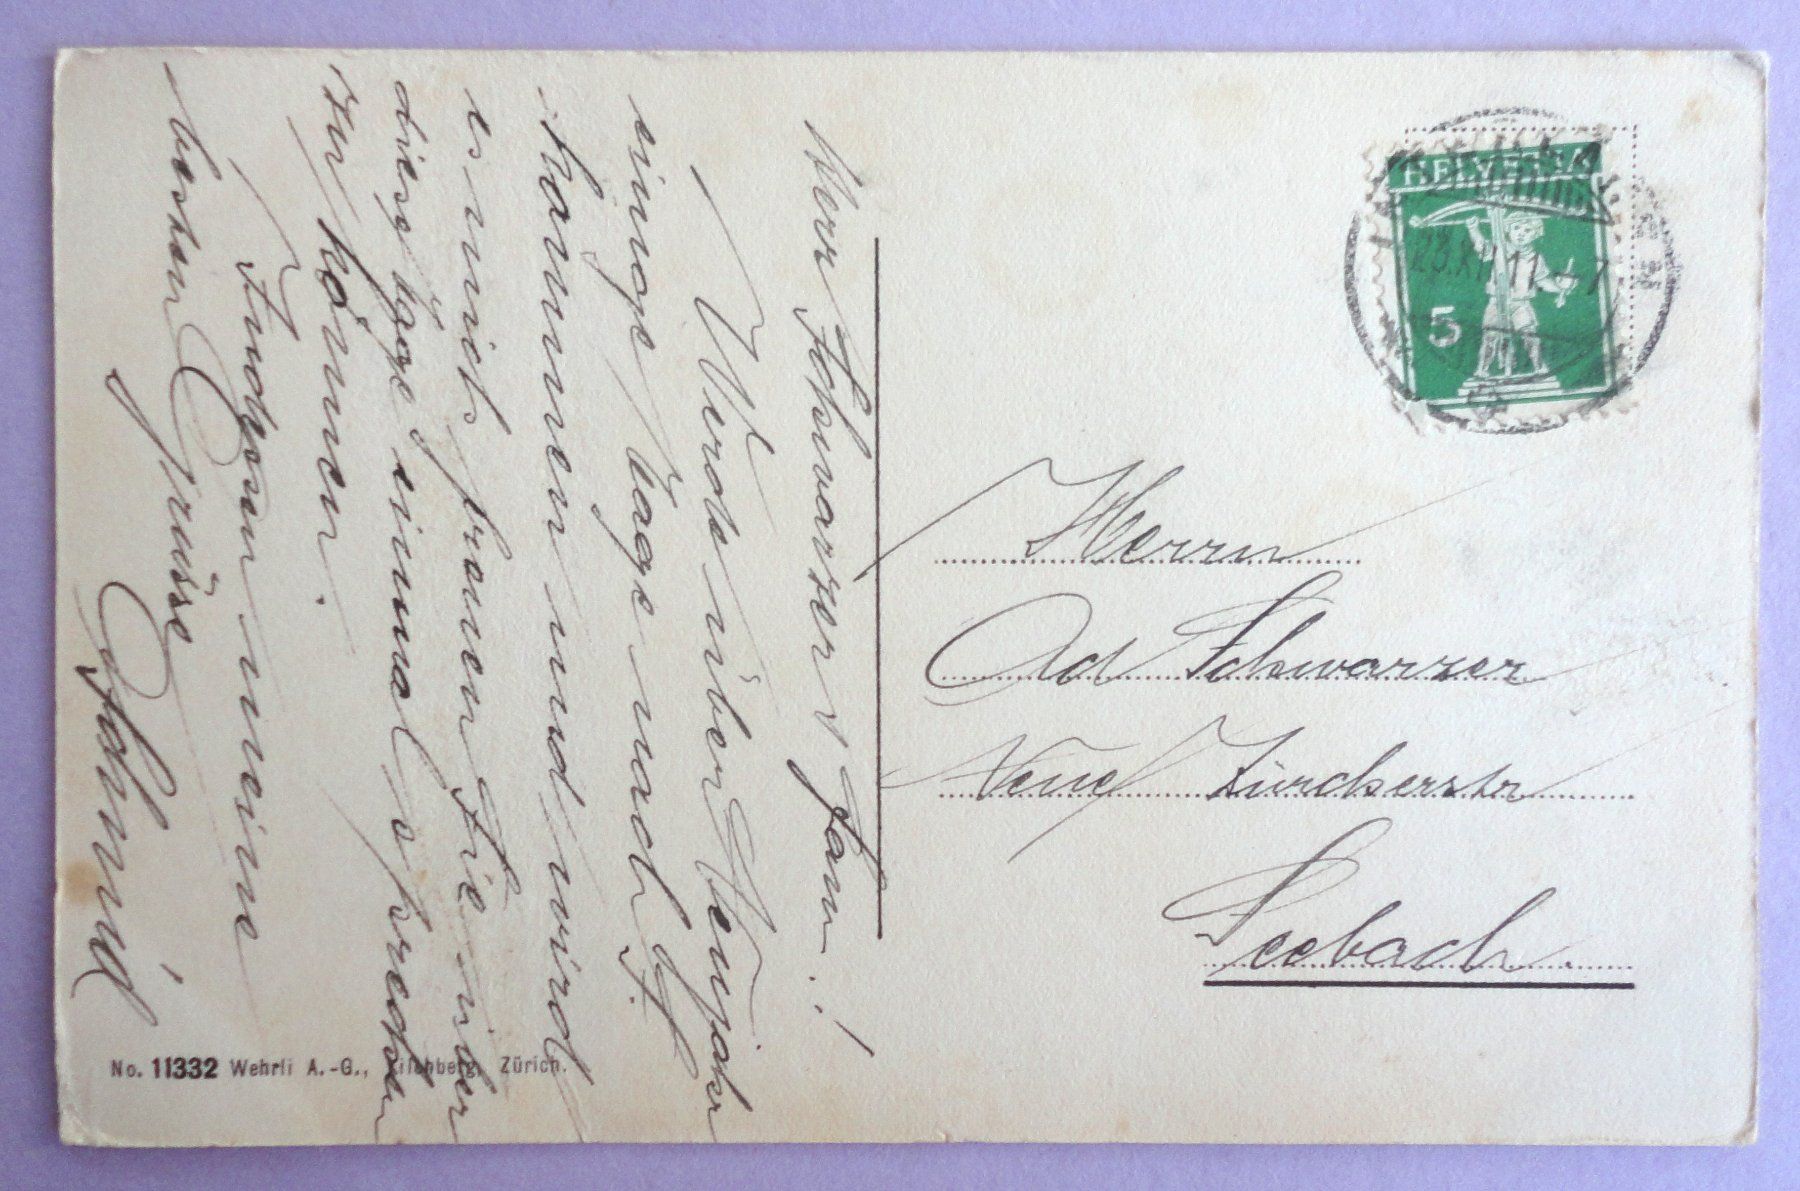 Herr Schwarzer u Fam.!
Werde über Neujahr
einige Tage nach
kommen und wird
es mich freuen Sie über
diese Tage einmal sprechen
zu können.
Indessen meine
besten Grüsse
Schmid
HELVETIA
5
23.XII.11.-7
Herrn
Ad Schwarzer
Neue Zürcherstr
Seebach.
No. 11332 Wehrli A.-G., Kilchberg, Zürich.